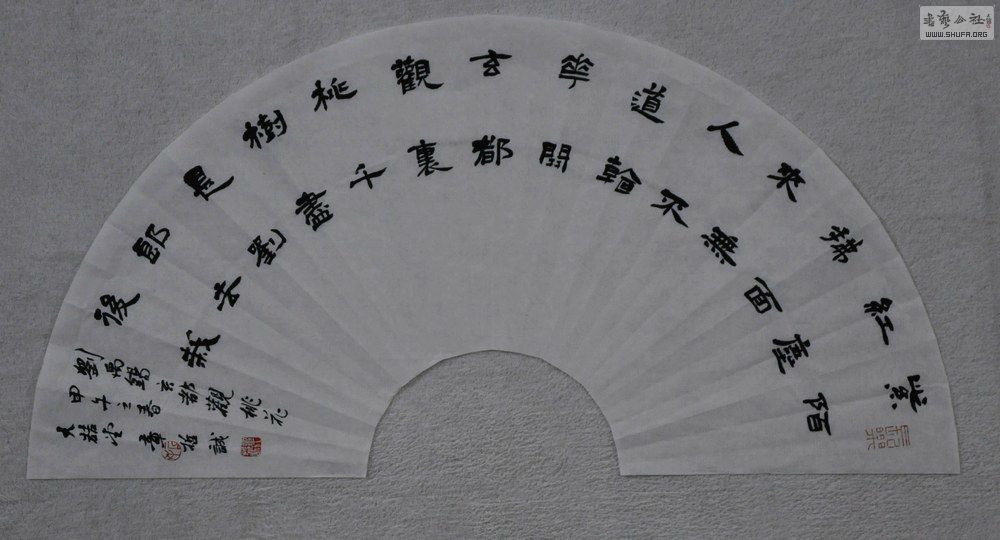 紫陌
紅塵
拂面
來無
人不
道
華
玄都
觀裏
桃千
樹盡
是劉
郎去
後栽
劉禹錫玄都觀桃花
甲午之春
大堂章誠
書藝公社
WWW.SHUFA.ORG